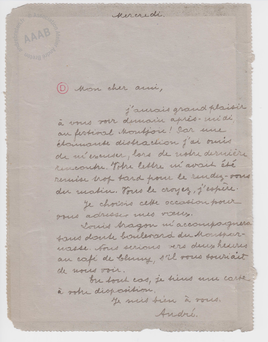 Mercredi.
Mon cher ami,
j'aurais grand plaisir
à vous voir demain après-midi
au festival Par une
étonnante distraction j'ai omis
de m'excuser, lors de notre dernière
rencontre. Votre lettre m'avait été
remise trop tard pour le rendez-vous
du matin. Vous le croyez, j'espère.
Je choisis cette occasion pour
vous adresser mes vœux.
Louis Aragon m'accompagnera
sans doute boulevard du Montpar-
nasse. Nous serions vers deux heures
au café de Cluny, s'il vous
de nous voir.
En tout cas, je tiens une carte
à votre disposition.
Je suis bien à vous.
André.